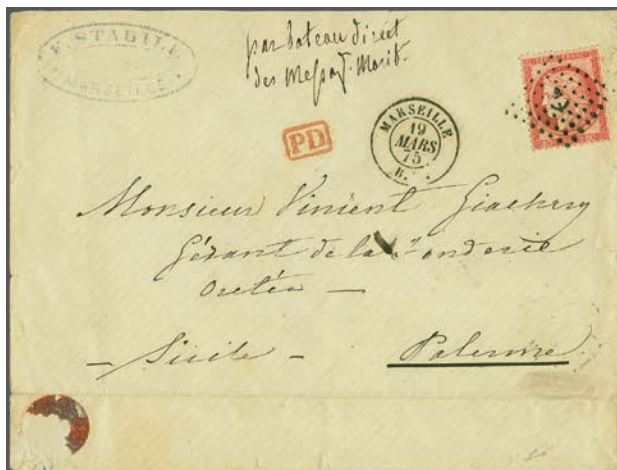 F. STABILE
MARSEILLE
par bateau direct
des Messag. Marit.
PD
MARSEILLE
19
MARS
75
Monsieur Vincent Giachery
Gérant de la Fonderie
Oretéa —
— Sicile —
Palerme